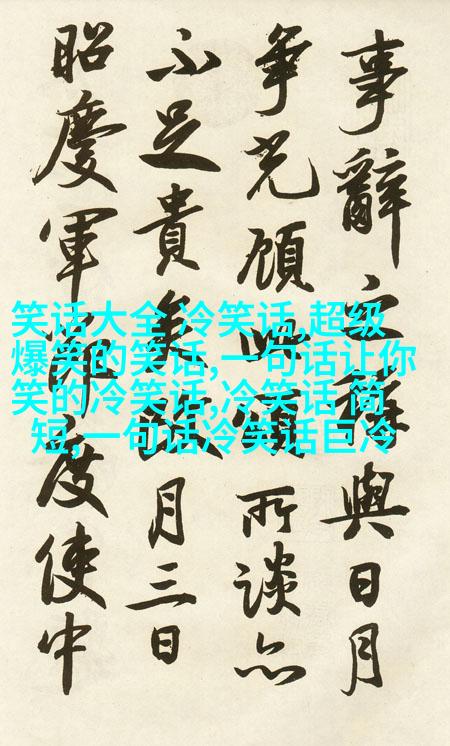 事辭之與日月
爭光顧所談亦
不足貴矣月三日
昭慶軍節度使中
笑话大全 冷笑话,超级
爆笑的笑话,一句话让你
笑的冷笑话,冷笑话 简
短,一句话冷笑话巨冷